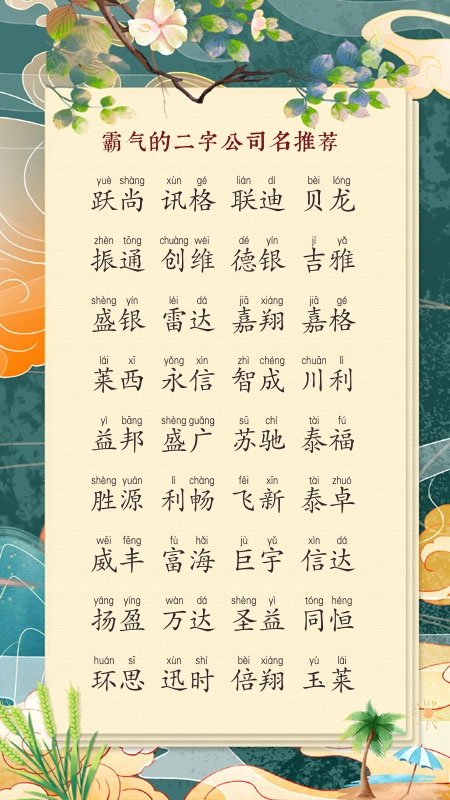 霸气的二字公司名推荐
yuè shàng xùn gé lián dí bèi lóng
跃尚 讯格 联迪 贝龙
zhèn tōng chuàng wéi dé yín jí yǎ
振通 创维 德银 吉雅
shèng yín léi dá jiā xiáng jiā gé
盛银 雷达 嘉翔 嘉格
lái xī yǒng xìn zhì chéng chuān lì
莱西 永信 智成 川利
yì bāng shèng guǎng sū chí tài fú
益邦 盛广 苏驰 泰福
shèng yuán lì chàng fēi xīn tài zhuó
胜源 利畅 飞新 泰卓
wēi fēng fù hǎi jù yǔ xìn dá
威丰 富海 巨宇 信达
yáng yíng wàn dá shèng yì tóng héng
扬盈 万达 圣益 同恒
huán sī xùn shí bèi xiáng yù lái
环思 迅时 倍翔 玉莱